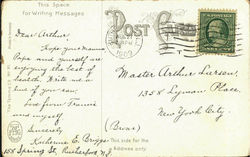 This Space
for Writing Messages
POST CARD
Dear Arthur:
Hope your mamma
Papa and yourself are
enjoying the best of
health. Write me a
line if you can.
Love from Francis
and myself
Sincerely
Katherine E. Briggs
158 Spring St. Rutherford N.J.
1909
Master Arthur Larson,
1358 Lyman Place
New York City.
(Bronx)
This side for the
Address only